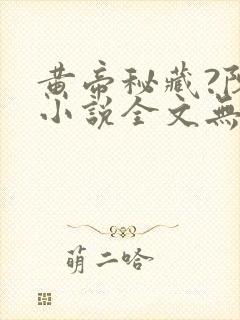 黄帝秘藏?
小說全文無
萌二哈